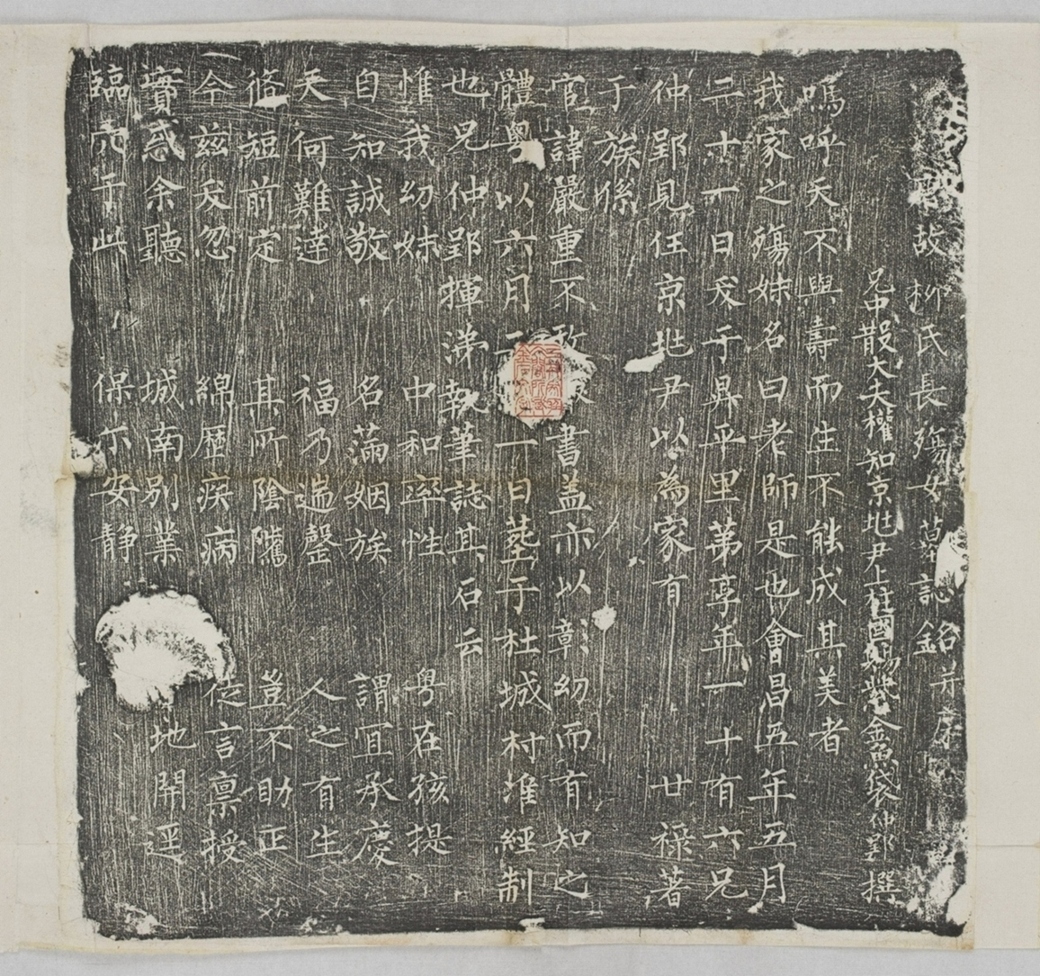 故柳氏長殤女墓誌銘并序
兄中散大夫權知京地尹上柱國賜紫金魚袋仲郢撰
嗚呼天不與壽而生不能成其美者
我家之殤妹名曰老師是也會昌五年五月
二十一日終于昇平里第享年一十有六兄
仲郢見任京地尹以為家有 世祿著
于族係
官諱嚴重不敢書盖亦以彰幼而有知之
體粵以六月一日葬于杜城村堆經制
也兄仲郢揮涕執筆誌其石云
惟我幼妹 中和率性 粵在孩提
自知誠敬 名滿姻族 謂宜承慶
天何難達 福乃遄罄 人之有生
脩短前定 其所陰隲 豈不助正
今兹天忽 綿歷疾病 從言禀授
實惑余聽 城南別業 地開逕
臨穴于此 保尒安静